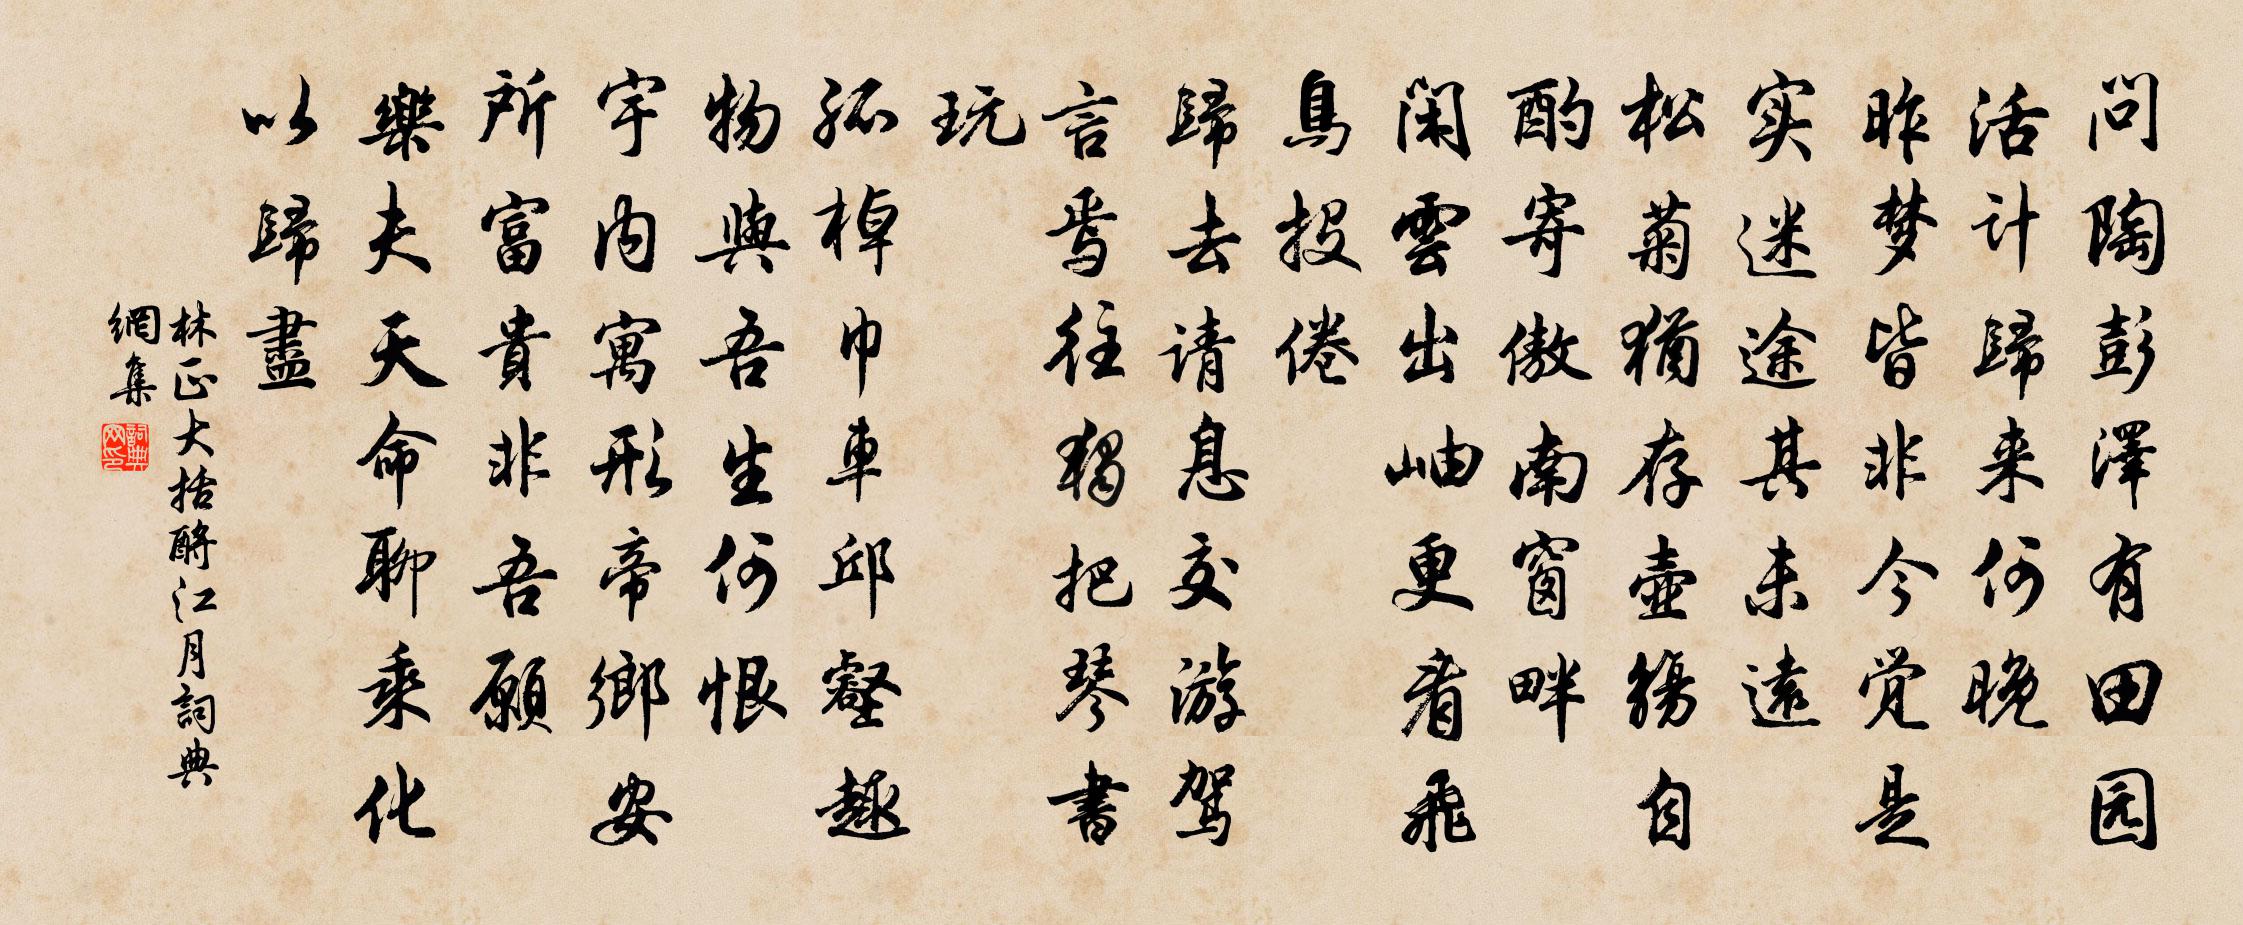 问陶彭澤有田园
活计歸来何晚
昨梦皆非今觉是
实迷途其未遠
松菊猶存壶觴自
酌寄傲南窗畔
闲雲出岫更看飛
鳥投倦
歸去请息交游驾
言焉往獨把琴書
玩
孤棹巾車邱壑趣
物與吾生何恨
宇内寓形帝鄉安
所富貴非吾願
樂夫天命聊乘化
以歸盡
林正大括酹江月詞典
網集
詞典网印